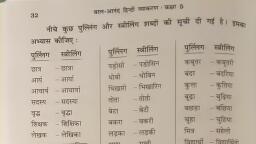 32 बाल-आनंद हिन्दी व्याकरण - कक्षा 5
नीचे कुछ पुल्लिंग और स्त्रीलिंग शब्दों की सूची दी गई है। इनका
अभ्यास कीजिए :
पुल्लिंग स्त्रीलिंग पुल्लिंग स्त्रीलिंग पुल्लिंग स्त्रीलिंग
छात्र – छात्रा पड़ोसी – पड़ोसिन कबूतर – कबूतरी
आर्य – आर्या धोबी – धोबिन बंदर – बंदरिया
आचार्य – आचार्या भिखारी – भिखारिन कुत्ता – कुतिया
सदस्य – सदस्या तोता – तोती बूढ़ा – बुढ़िया
वृद्ध – वृद्धा बेटा – बेटी बछड़ा – बछिया
शिक्षक – शिक्षिका बकरा – बकरी चूहा – चुहिया
लेखक – लेखिका लड़का – लड़की मित्र – सहेली